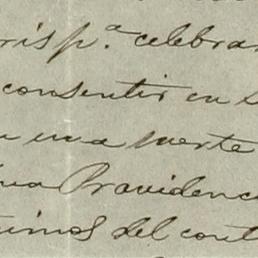 ris pª celebra
consentir en s
una suerte
na Providenc
timos del cont